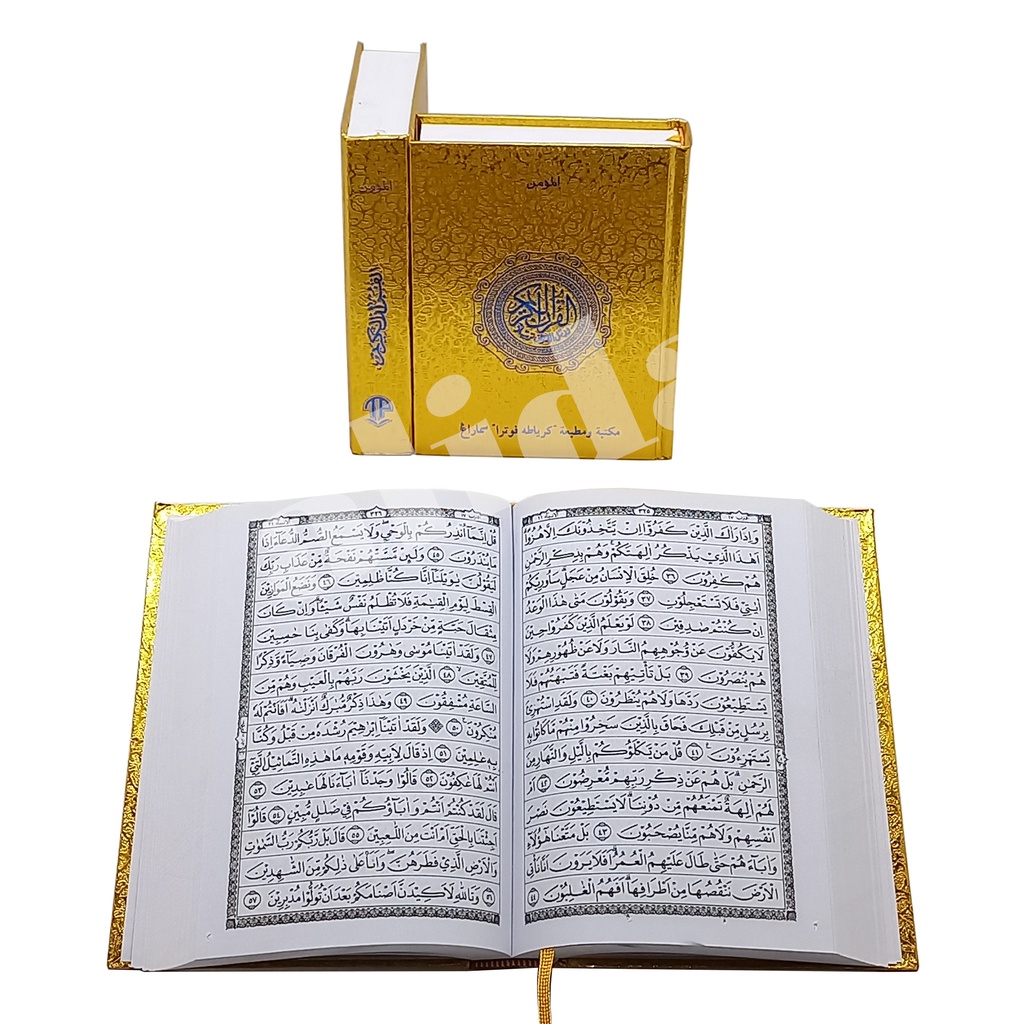 المؤمن
القرآن الكريم
المؤمن
القرآن الكريم
مكتبة ومطبعة "كرياطه فوترا" سماراغ
٣٢٥
وَاِذَا رَاٰكَ الَّذِيْنَ كَفَرُوْٓا اِنْ يَّتَّخِذُوْنَكَ اِلَّا هُزُوًا
اَهٰذَا الَّذِيْ يَذْكُرُ اٰلِهَتَكُمْ وَهُمْ بِذِكْرِ الرَّحْمٰنِ
هُمْ كٰفِرُوْنَ ٣٦ خُلِقَ الْاِنْسَانُ مِنْ عَجَلٍ سَاُورِيْكُمْ
اٰيٰتِيْ فَلَا تَسْتَعْجِلُوْنِ ٣٧ وَيَقُوْلُوْنَ مَتٰى هٰذَا الْوَعْدُ
اِنْ كُنْتُمْ صٰدِقِيْنَ ٣٨ لَوْ يَعْلَمُ الَّذِيْنَ كَفَرُوْا حِيْنَ
لَا يَكُفُّوْنَ عَنْ وُّجُوْهِهِمُ النَّارَ وَلَا عَنْ ظُهُوْرِهِمْ وَلَا
هُمْ يُنْصَرُوْنَ ٣٩ بَلْ تَأْتِيْهِمْ بَغْتَةً فَتَبْهَتُهُمْ فَلَا
يَسْتَطِيْعُوْنَ رَدَّهَا وَلَا هُمْ يُنْظَرُوْنَ ٤٠ وَلَقَدِ اسْتُهْزِئَ
بِرُسُلٍ مِّنْ قَبْلِكَ فَحَاقَ بِالَّذِيْنَ سَخِرُوْا مِنْهُمْ مَّا كَانُوْا بِهٖ
يَسْتَهْزِءُوْنَ ٤١ قُلْ مَنْ يَّكْلَؤُكُمْ بِالَّيْلِ وَالنَّهَارِ مِنَ
الرَّحْمٰنِ بَلْ هُمْ عَنْ ذِكْرِ رَبِّهِمْ مُّعْرِضُوْنَ ٤٢ اَمْ
لَهُمْ اٰلِهَةٌ تَمْنَعُهُمْ مِّنْ دُوْنِنَا لَا يَسْتَطِيْعُوْنَ نَصْرَ
اَنْفُسِهِمْ وَلَا هُمْ مِّنَّا يُصْحَبُوْنَ ٤٣ بَلْ مَتَّعْنَا هٰٓؤُلَاۤءِ
وَاٰبَاۤءَهُمْ حَتّٰى طَالَ عَلَيْهِمُ الْعُمُرُ اَفَلَا يَرَوْنَ اَنَّا نَأْتِى
الْاَرْضَ نَنْقُصُهَا مِنْ اَطْرَافِهَا اَفَهُمُ الْغٰلِبُوْنَ ٤٤
٣٢٦
قُلْ اِنَّمَآ اُنْذِرُكُمْ بِالْوَحْيِ وَلَا يَسْمَعُ الصُّمُّ الدُّعَاۤءَ اِذَا
مَا يُنْذَرُوْنَ ٤٥ وَلَئِنْ مَّسَّتْهُمْ نَفْحَةٌ مِّنْ عَذَابِ رَبِّكَ
لَيَقُوْلُنَّ يٰوَيْلَنَآ اِنَّا كُنَّا ظٰلِمِيْنَ ٤٦ وَنَضَعُ الْمَوَازِيْنَ
الْقِسْطَ لِيَوْمِ الْقِيٰمَةِ فَلَا تُظْلَمُ نَفْسٌ شَيْـًٔا وَاِنْ كَانَ
مِثْقَالَ حَبَّةٍ مِّنْ خَرْدَلٍ اَتَيْنَا بِهَا وَكَفٰى بِنَا حٰسِبِيْنَ
٤٧ وَلَقَدْ اٰتَيْنَا مُوْسٰى وَهٰرُوْنَ الْفُرْقَانَ وَضِيَاۤءً وَّذِكْرًا
لِّلْمُتَّقِيْنَ ٤٨ الَّذِيْنَ يَخْشَوْنَ رَبَّهُمْ بِالْغَيْبِ وَهُمْ مِّنَ
السَّاعَةِ مُشْفِقُوْنَ ٤٩ وَهٰذَا ذِكْرٌ مُّبٰرَكٌ اَنْزَلْنٰهُ اَفَاَنْتُمْ لَهٗ
مُنْكِرُوْنَ ٥٠ وَلَقَدْ اٰتَيْنَآ اِبْرٰهِيْمَ رُشْدَهٗ مِنْ قَبْلُ وَكُنَّا
بِهٖ عٰلِمِيْنَ ٥١ اِذْ قَالَ لِاَبِيْهِ وَقَوْمِهٖ مَا هٰذِهِ التَّمَاثِيْلُ الَّتِيْٓ
اَنْتُمْ لَهَا عٰكِفُوْنَ ٥٢ قَالُوْا وَجَدْنَآ اٰبَاۤءَنَا لَهَا عٰبِدِيْنَ ٥٣
قَالَ لَقَدْ كُنْتُمْ اَنْتُمْ وَاٰبَاۤؤُكُمْ فِيْ ضَلٰلٍ مُّبِيْنٍ ٥٤ قَالُوْٓا
اَجِئْتَنَا بِالْحَقِّ اَمْ اَنْتَ مِنَ اللّٰعِبِيْنَ ٥٥ قَالَ بَلْ رَّبُّكُمْ رَبُّ السَّمٰوٰتِ
وَالْاَرْضِ الَّذِيْ فَطَرَهُنَّ وَاَنَا۠ عَلٰى ذٰلِكُمْ مِّنَ الشّٰهِدِيْنَ
٥٦ وَتَاللّٰهِ لَاَكِيْدَنَّ اَصْنَامَكُمْ بَعْدَ اَنْ تُوَلُّوْا مُدْبِرِيْنَ ٥٧